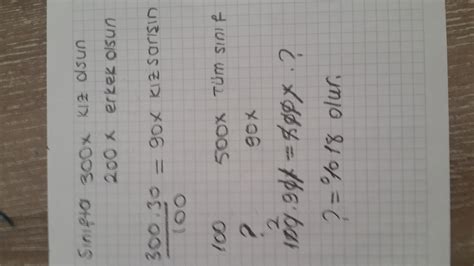 Sınıfta 300x kız olsun
200x erkek olsun
300.30 = 90x kız sarışın
100
100 500x tüm sınıf
? 90x
2
100.90x = 500x.?
? = %18 olur.